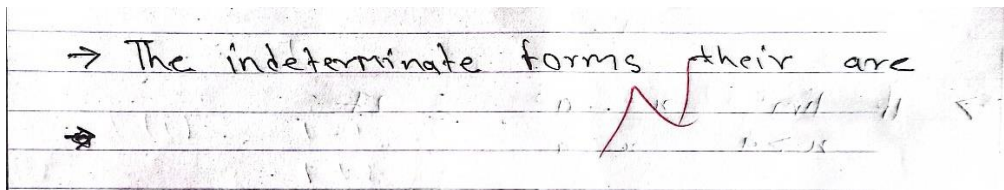 → The indeterminate forms their are
→